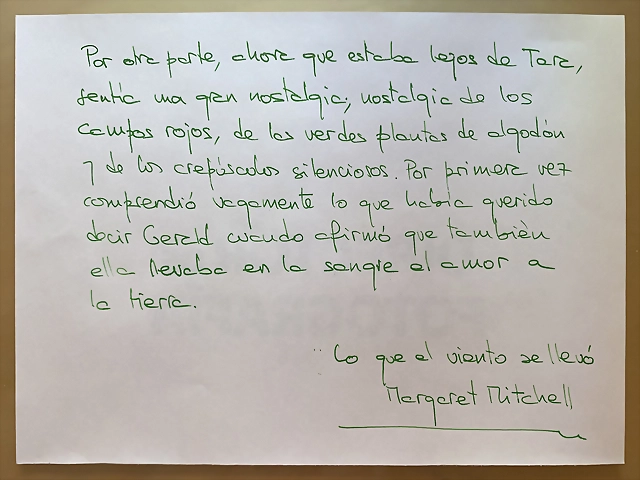 Por otra parte, ahora que estaba lejos de Tara,
sentía una gran nostalgia; nostalgia de los
campos rojos, de las verdes plantas de algodón
y de los crepúsculos silenciosos. Por primera vez
comprendió vagamente lo que había querido
decir Gerald cuando afirmó que también
ella llevaba en la sangre el amor a
la tierra.
Lo que el viento se llevó
Margaret Mitchell